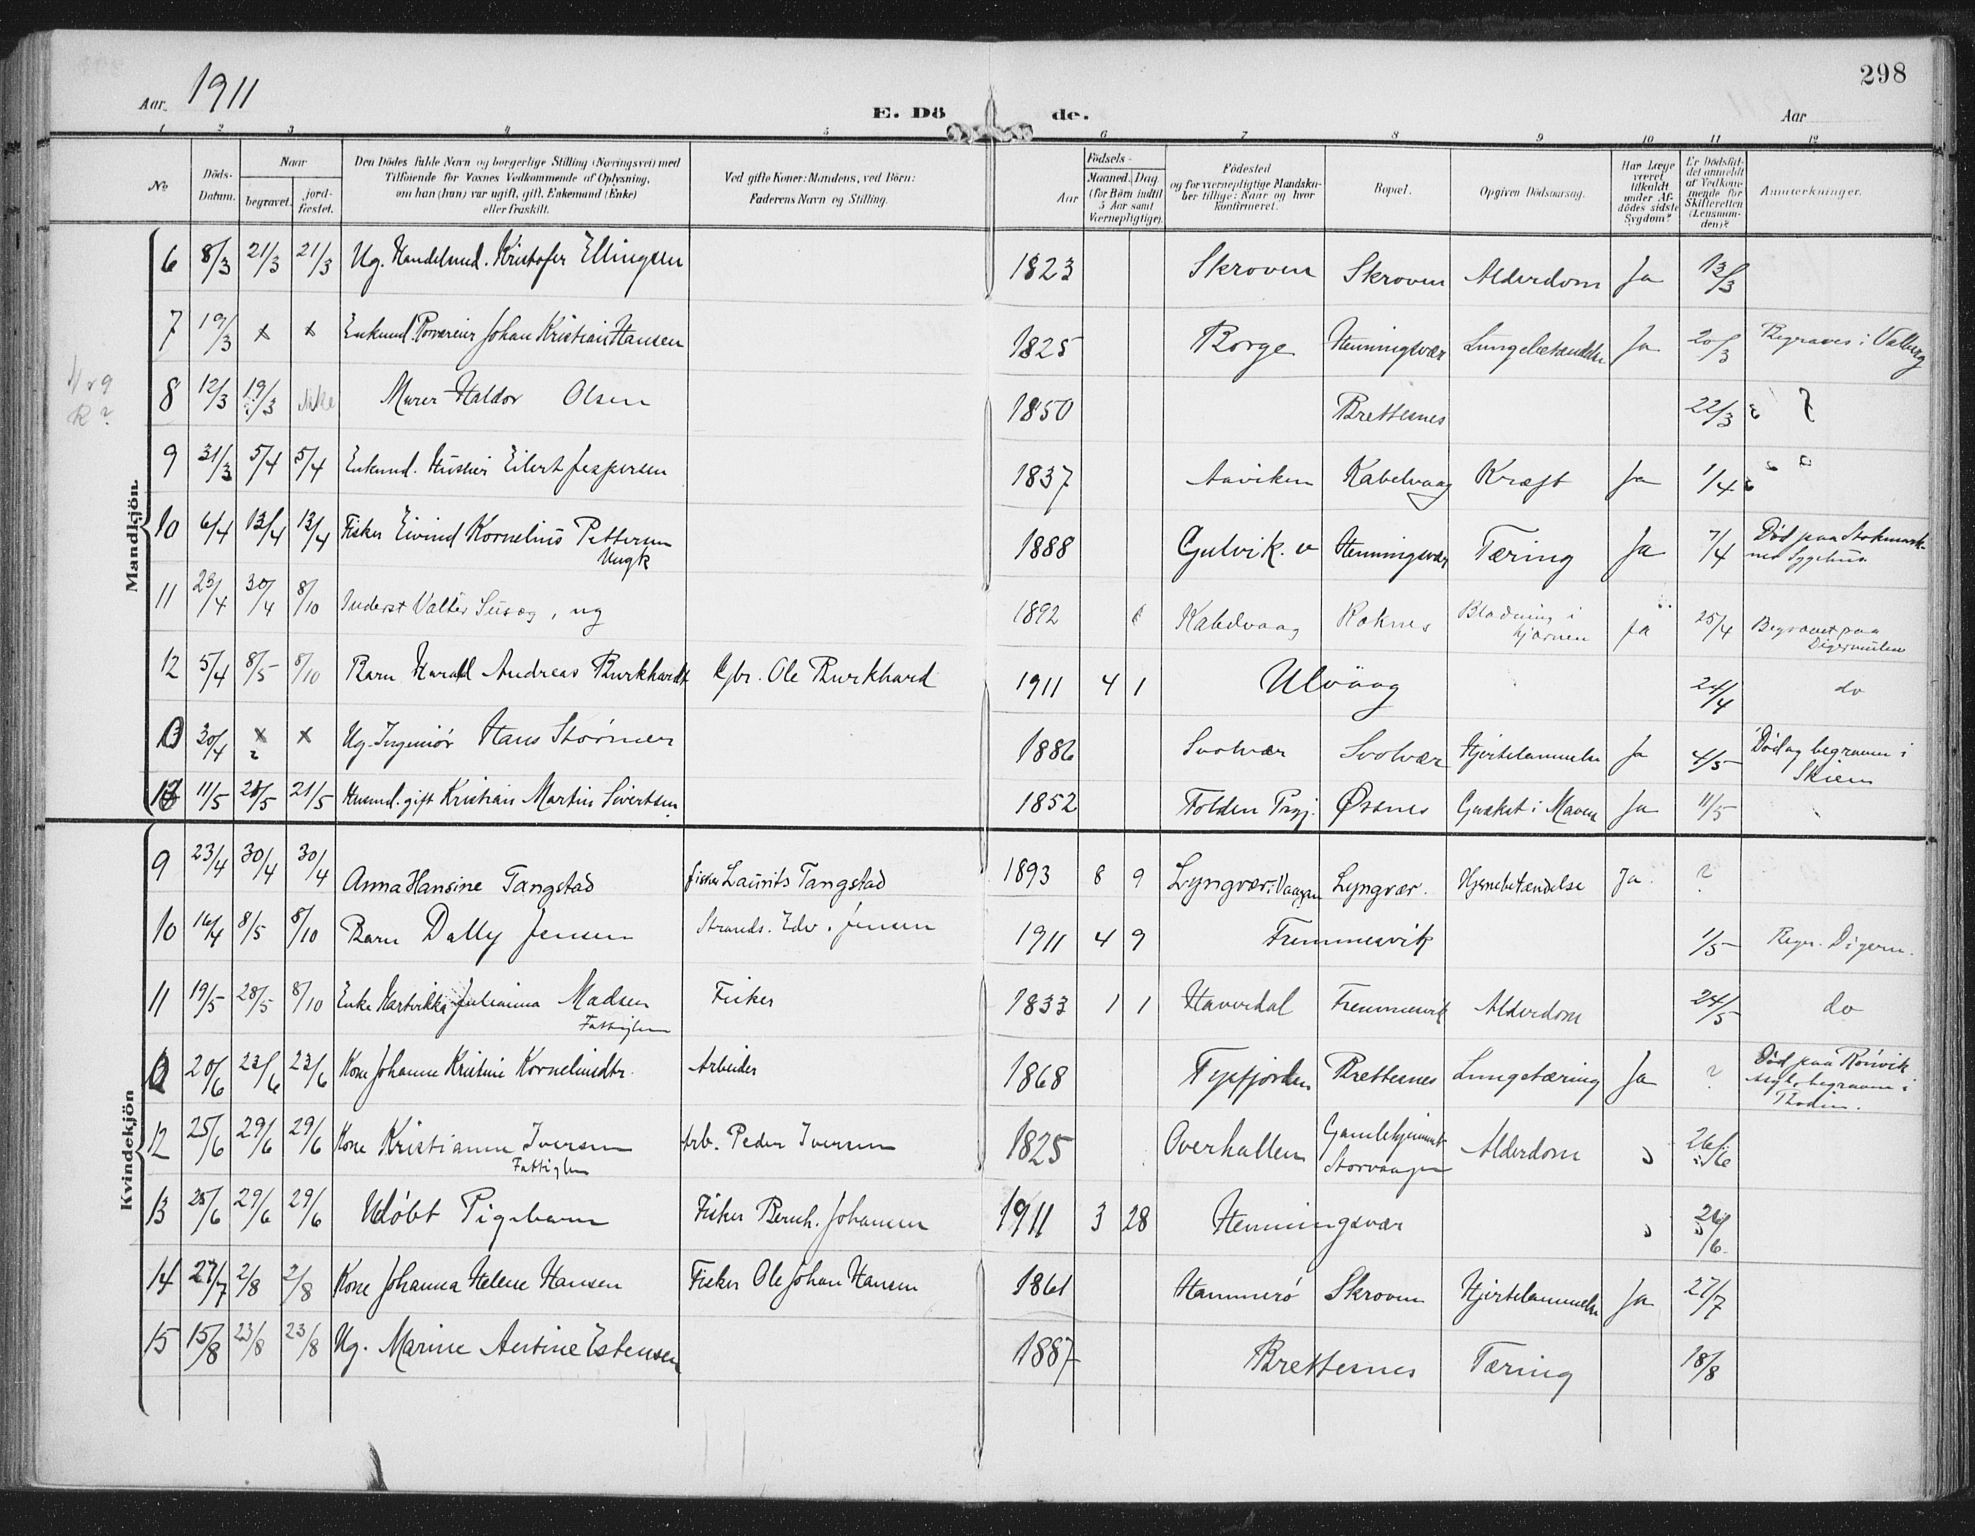 298
Aar 1911
E. Dö de.
Aar
1 2 3 4 5 6 7 8 9 10 11 12
No
Döds-Datum.
Naar
begravet.
jord-fæstet.
Den Dödes fulde Navn og borgerlige Stilling (Næringsvei) med
Tilføiende for Voxnes Vedkommende af Oplysning,
om han (hun) var ugift, gift, Enkemand (Enke)
eller fraskilt.
Ved gifte Koner: Mandens, ved Börn:
Faderens Navn og Stilling.
Födsels-
Aar
Maaned. Dag.
(for Börn indtil
5 Aar samt
Værnepligtige).
Födested
og for værnepligtige Mandska-
ber tillige: Naar og hvor
konfirmeret.
Bopæl.
Opgiven Dödsaarsag.
Har Læge
været
tilkaldt
under Af-
dödes sidste
Sygdom?
Er Dödsfal-
det anmeldt
af Vedkom-
mende for
Skifteretten
(Lensman-
den)?
Anmærkninger.
Mandkjön.
6 8/3 21/3 21/3 Ug. Handelsmd. Kristofer Ellingsen 1823 Skroven Skroven Alderdom Ja 13/3
7 19/3 x x Enkemd. Johan Kristian Hansen 1825 Borge Henningsvær Lungebetændelse Ja 20/3 Begraves i Valberg
8 12/3 19/3 Ikke Murer Haldor Olsen 1850 Brettesnes 22/3
9 31/3 5/4 5/4 Enkemd. Eilert Jespersen 1837 Aaviken Kabelvaag Kræft Ja 1/4
10 6/4 13/4 13/4 Fisker Eivind Kornelius Pettersen 1888 Gulvik. Henningsvær Tæring Ja 7/4 Død paa Stokmark-
Ungk
nes Sygehus
11 23/4 30/4 8/10 Inderst Valter , ug 1892 Kabelvaag Roknes Blødning i Ja 25/4 Begravet paa
hjærnen
Digermulen
12 5/4 8/5 8/10 Barn Harald Andreas Burkhardt Gbr. Ole Burkhard 1911 4 1 Ulvaag 24/4 do
13 30/4 x x Ug. Ingeniør Hans Størmer 1886 Svolvær Svolvær Hjertelammelse Ja 4/5 Død og begraven i
Skien
13 11/5 21/5 21/5 Husmd. gift Kristian Martin Sivertsen 1852 Folden Prgj. Ørsnes Kræft i Maven Ja 11/5
Kvindekjön
9 23/4 30/4 30/4 Anna Hansine Tangstad fisker Laurits Tangstad 1893 8 9 Lyngvær i Vaagan Lyngvær. Hjernebetændelse Ja. ?
10 16/4 8/5 8/10 Barn Dally Jensen Strands. Edv. Jensen 1911 4 9 Fremmesvik 1/5 Begr. Digerm.
11 19/5 28/5 8/10 Enke Hartvikka Julianna Madsen Fisker 1833 1 1 Haverdal Fremmesvik Alderdom 24/5 do
Fattiglem
20/6 23/6 23/6 Kone Johanne Kristine Korneliusdtr. Arbeider 1868 Typfjorden Brettesnes Lungetæring Ja ? Død paa Rønvik
Asyl begraven i
12 25/6 29/6 29/6 Kone Kristianne Iversen Arb. Peder Iversen 1825 Overhallen Gamlehjemmet Alderdom 26/6
Fattiglem
Storvaagen
13 25/6 29/6 29/6 Udöbt Pigebarn Fisker Bernh. Johansen 1911 3 28 Henningsvær 26/6
14 27/7 2/8 2/8 Kone Johanna Helene Hansen Fisker Ole Johan Hansen 1861 Hammerö Skroven Hjertelammelse Ja 27/7
15 15/8 23/8 23/8 Ug. Marine Antine Estensen 1887 Brettesnes Tæring 18/8